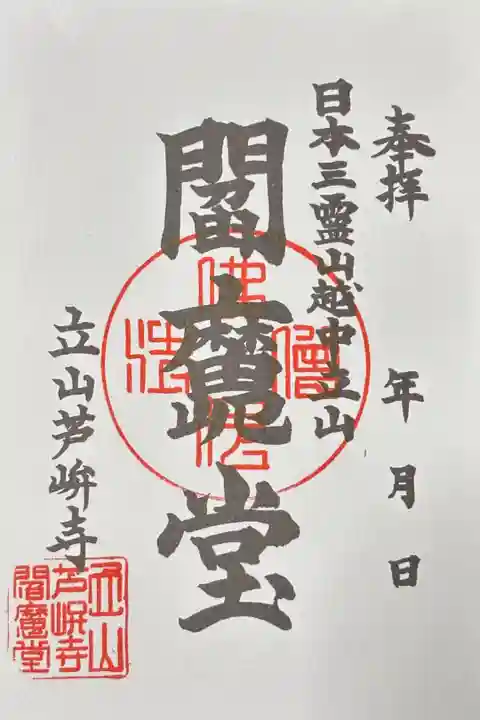 奉拝　年　月　日
日本三霊山越中立山
閻魔堂
立山芦峅寺
佛
法
僧
立山
芦峅寺
閻魔堂